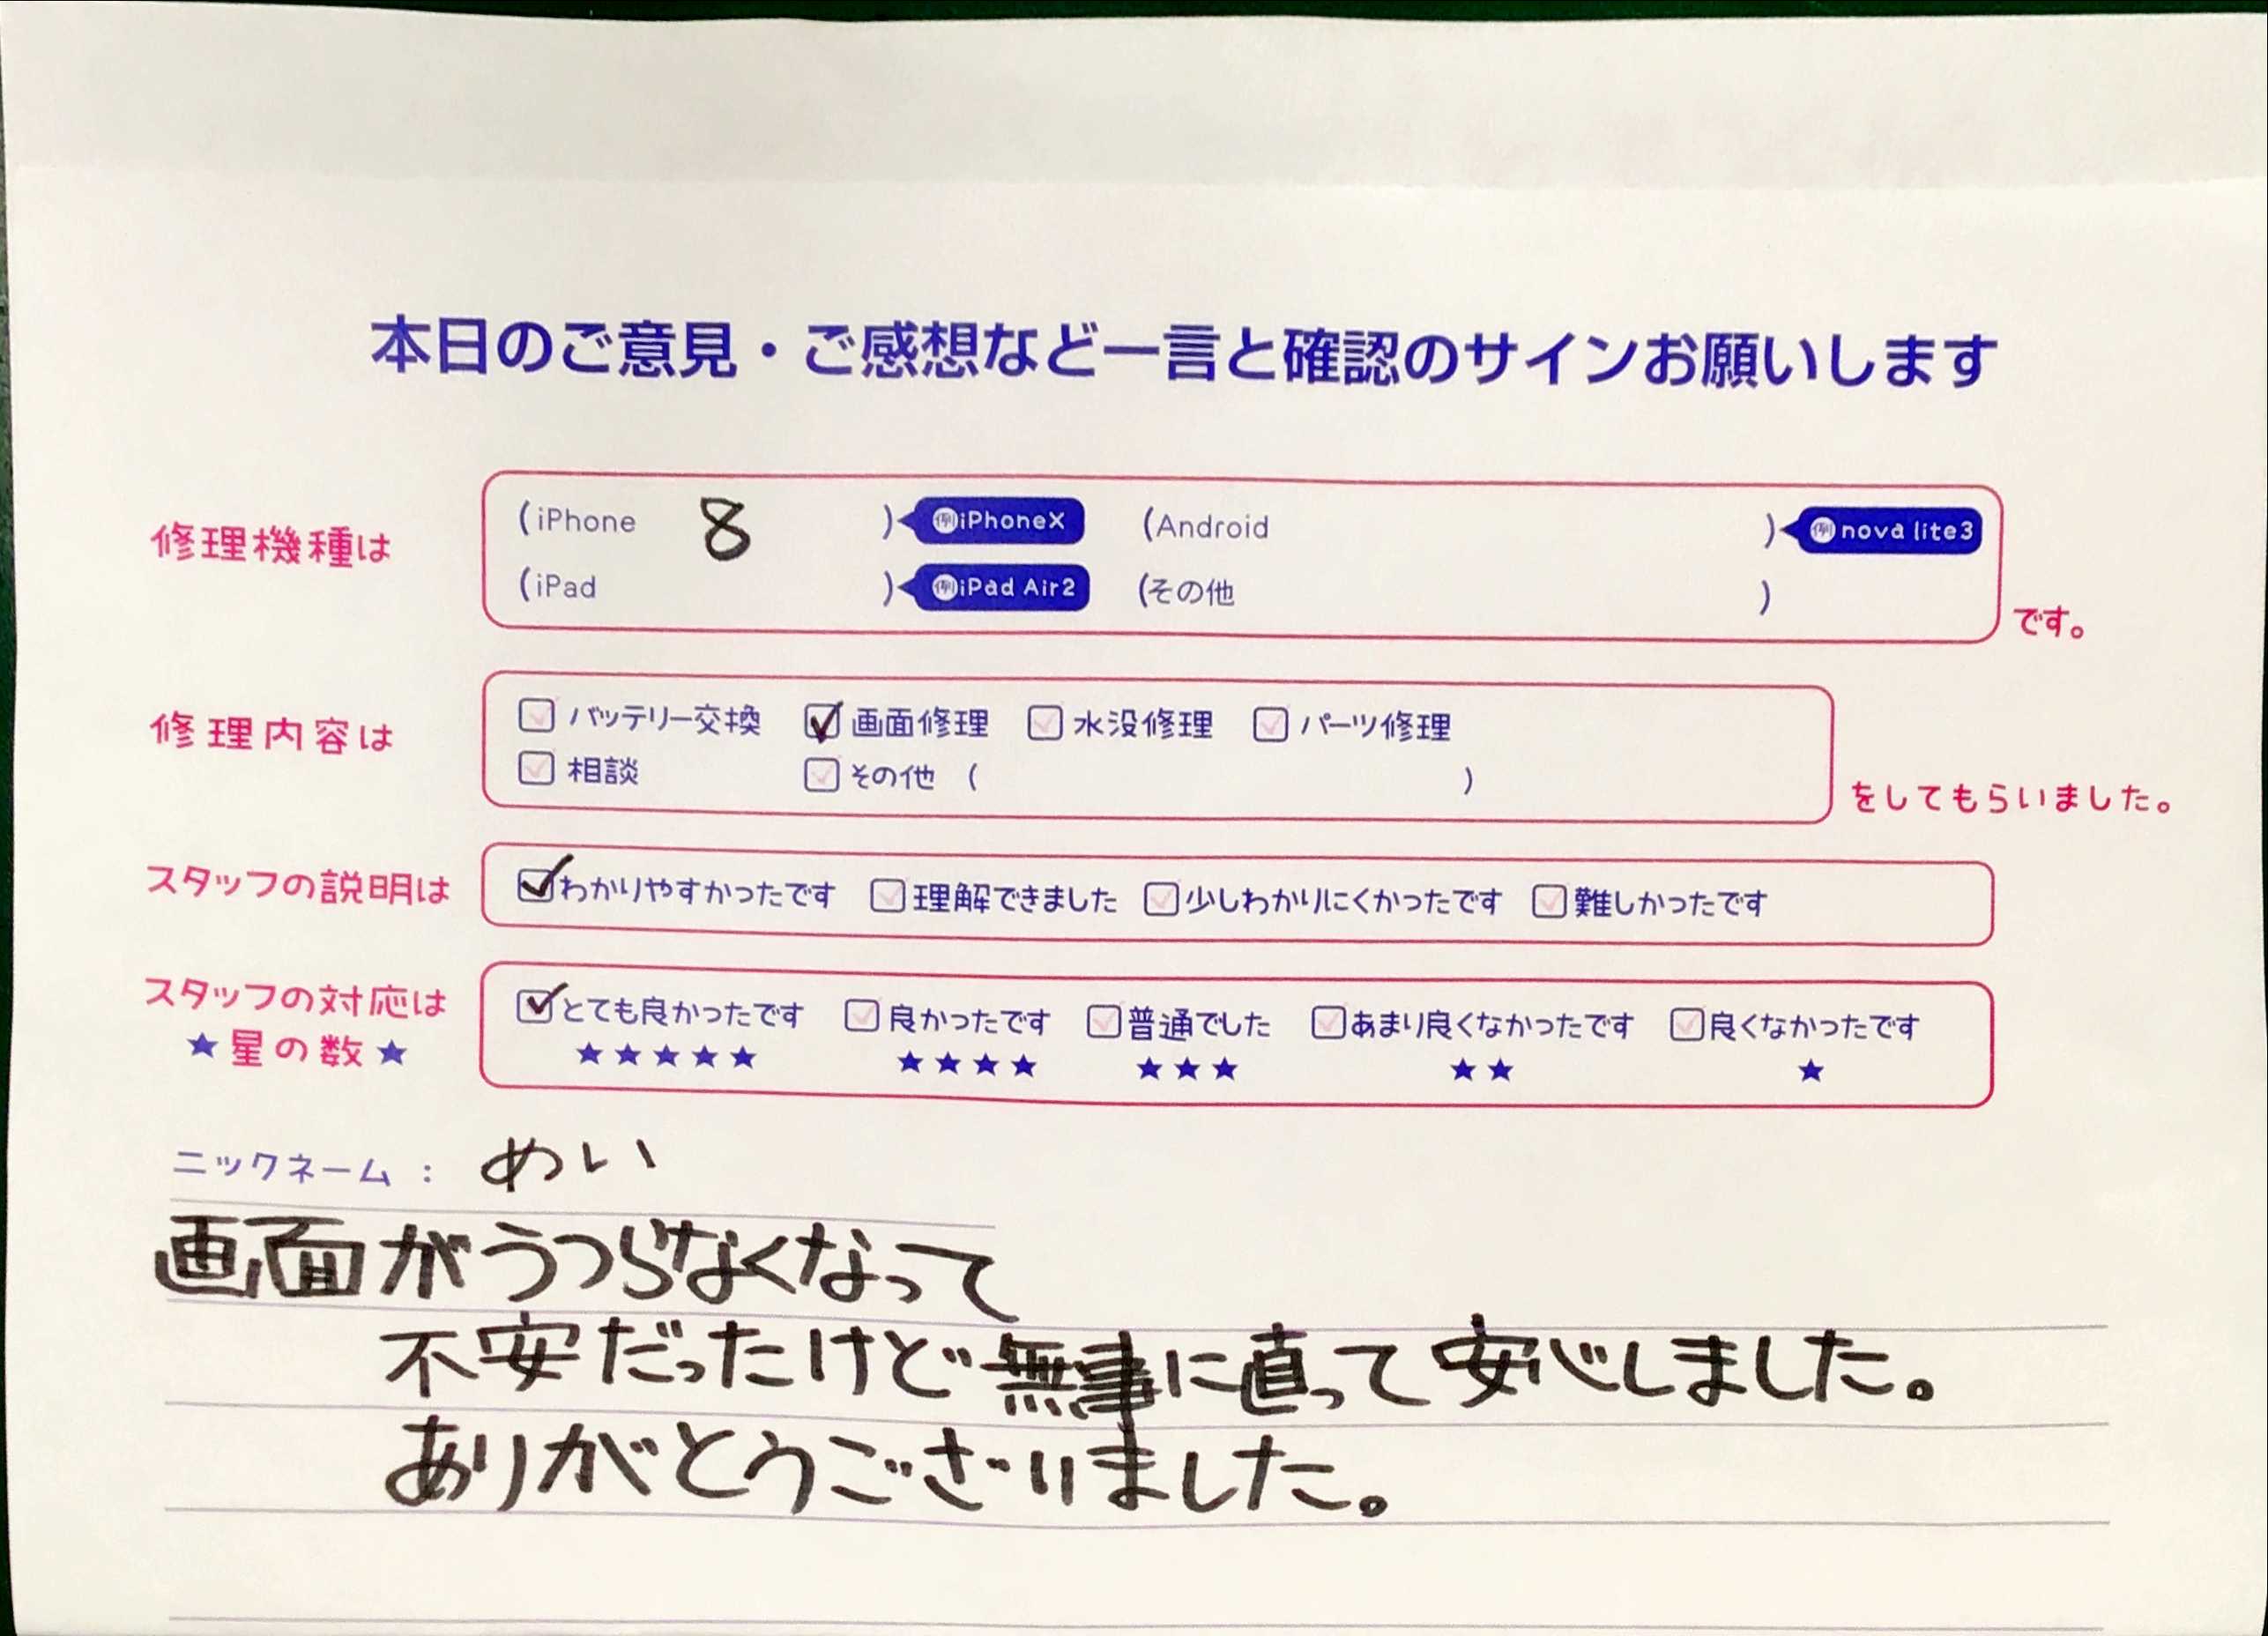 本日のご意見・ご感想など一言と確認のサインお願いします
修理機種は
(iPhone 8 ) 例iPhoneX (Android ) 例nova lite3
(iPad ) 例iPad Air2 (その他 )
です。
修理内容は
バッテリー交換 画面修理 水没修理 パーツ修理
相談 その他 ( )
をしてもらいました。
スタッフの説明は
わかりやすかったです 理解できました 少しわかりにくかったです 難しかったです
スタッフの対応は
★星の数★
とても良かったです 良かったです 普通でした あまり良くなかったです 良くなかったです
★★★★★ ★★★★ ★★★ ★★ ★
ニックネーム : めい
画面がうつらなくなって
不安だったけど無事に直って安心しました。
ありがとうございました。